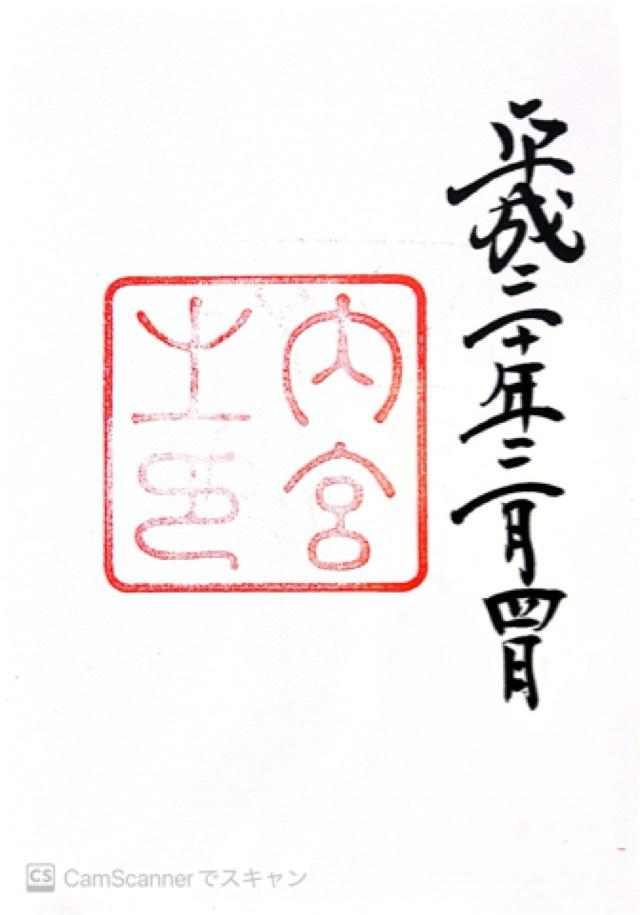 平成三十年三月四日
内宮
之印
CS CamScannerでスキャン